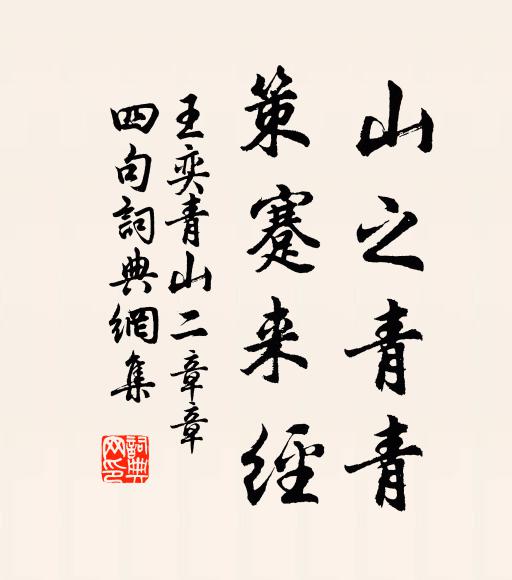 山之青青
策蹇来經
王奕青山二章章
四句詞典網集
詞典网印